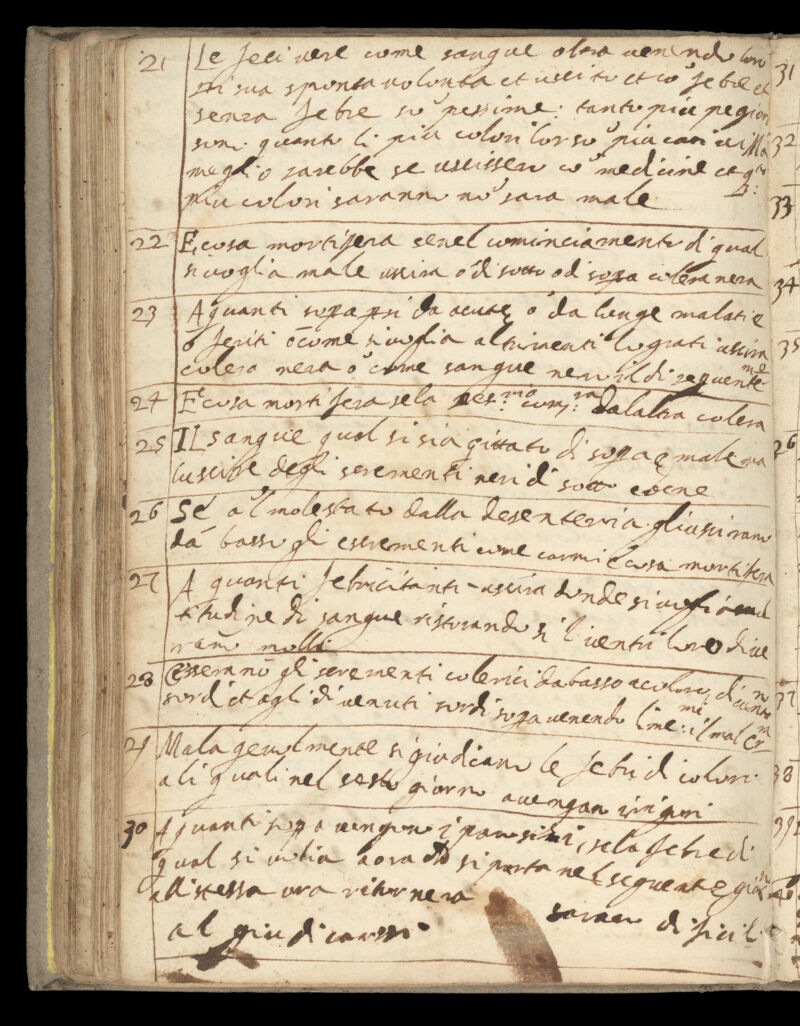 21 Le feci nere come sangue oltra venendo loro
di sua sponta volonta et uscito et cō febre et
senza febre sō pessime: tanto più pegiori
sonō quanto li più colori lor sō più cari
meglio sarebbe se uscissero cō medicine et
più colori saranno nō sara male
22 È cosa mortifera se nel cominciamento di qual
si voglia male uscira ò di sotto ò di sopra colera nera
23 A quanti sopapsi da acute ò da lunge malatie
ò feriti ò come si voglia altrimenti lograti uscira
colera nera ò come sangue nero il di seguente
24 È cosa mortifera se la dalaltra colera
25 IL sangue qual si sia gittato di sopra è male ma
luscire degli scrementi neri di sotto è bene
26 Se al molestato dalla desenteria gli usciranō
da basso gli escrementi come carni è cosa mortifera
27 A quanti febricitanti uscira donde si voglia
titudine di sangue ristorandosi li ventri loro dive
ranō molli
28 Esseranno gli scrementi colerici da basso a coloro,
sordi et agli divenuti sordi sopa venendo li il mal
29 Mala gevolmente si giudicano le febri di coloro
ali quali nel sesto giorno avengan irigori
30 A quanti sopa vengono i parosismi, se la febre di
qual si voglia hora si parta nel seguente
allistessa ora ritornera saran dificil
al giudicarssi.
31
32
33
34
35
36
37
38
39
40